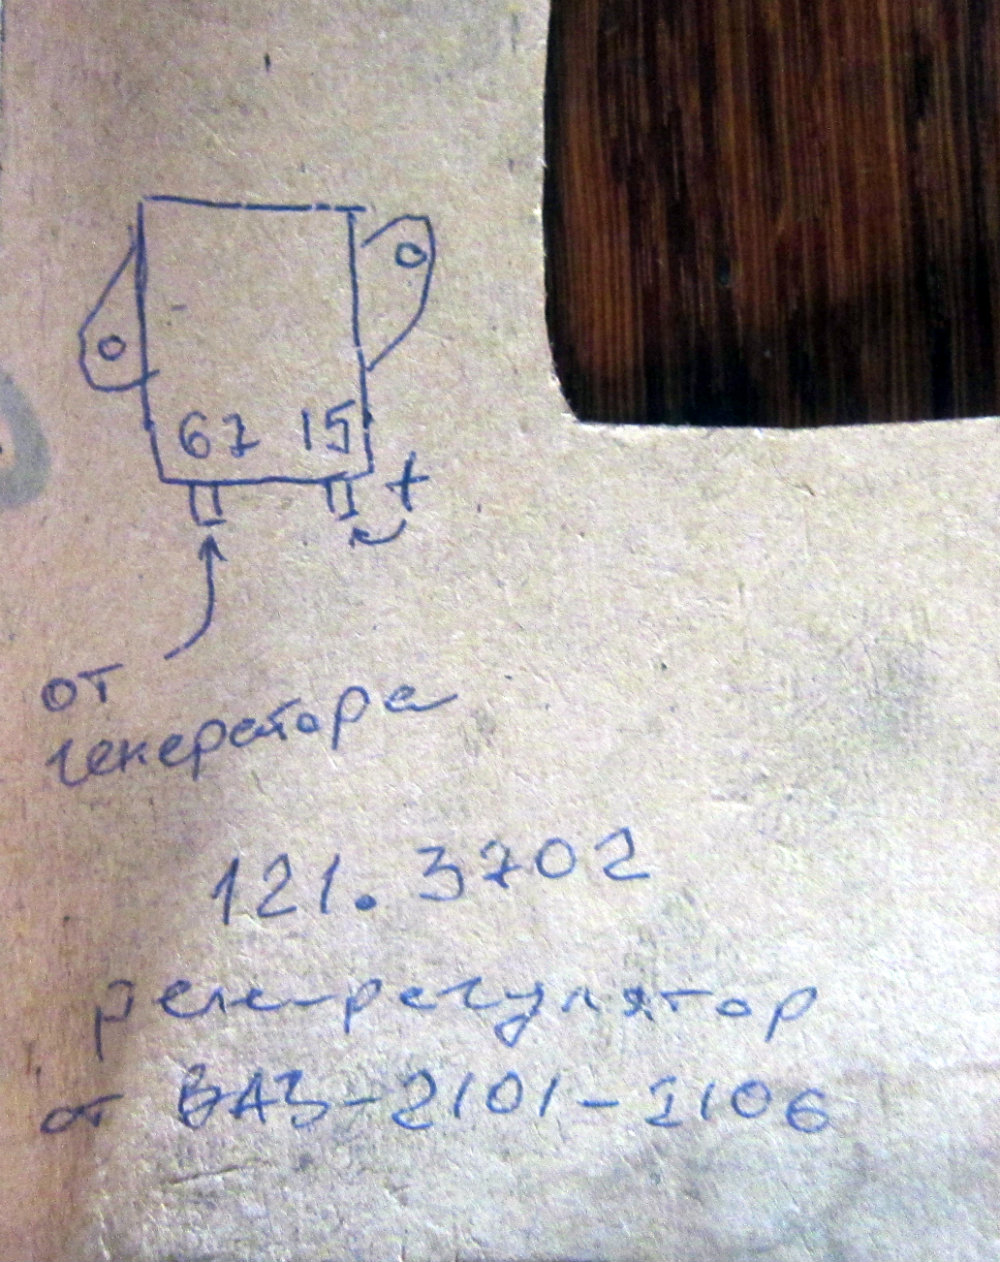 67 15
+
от
генератора
121.3702
реле-регулятор
от ВАЗ-2101-2106